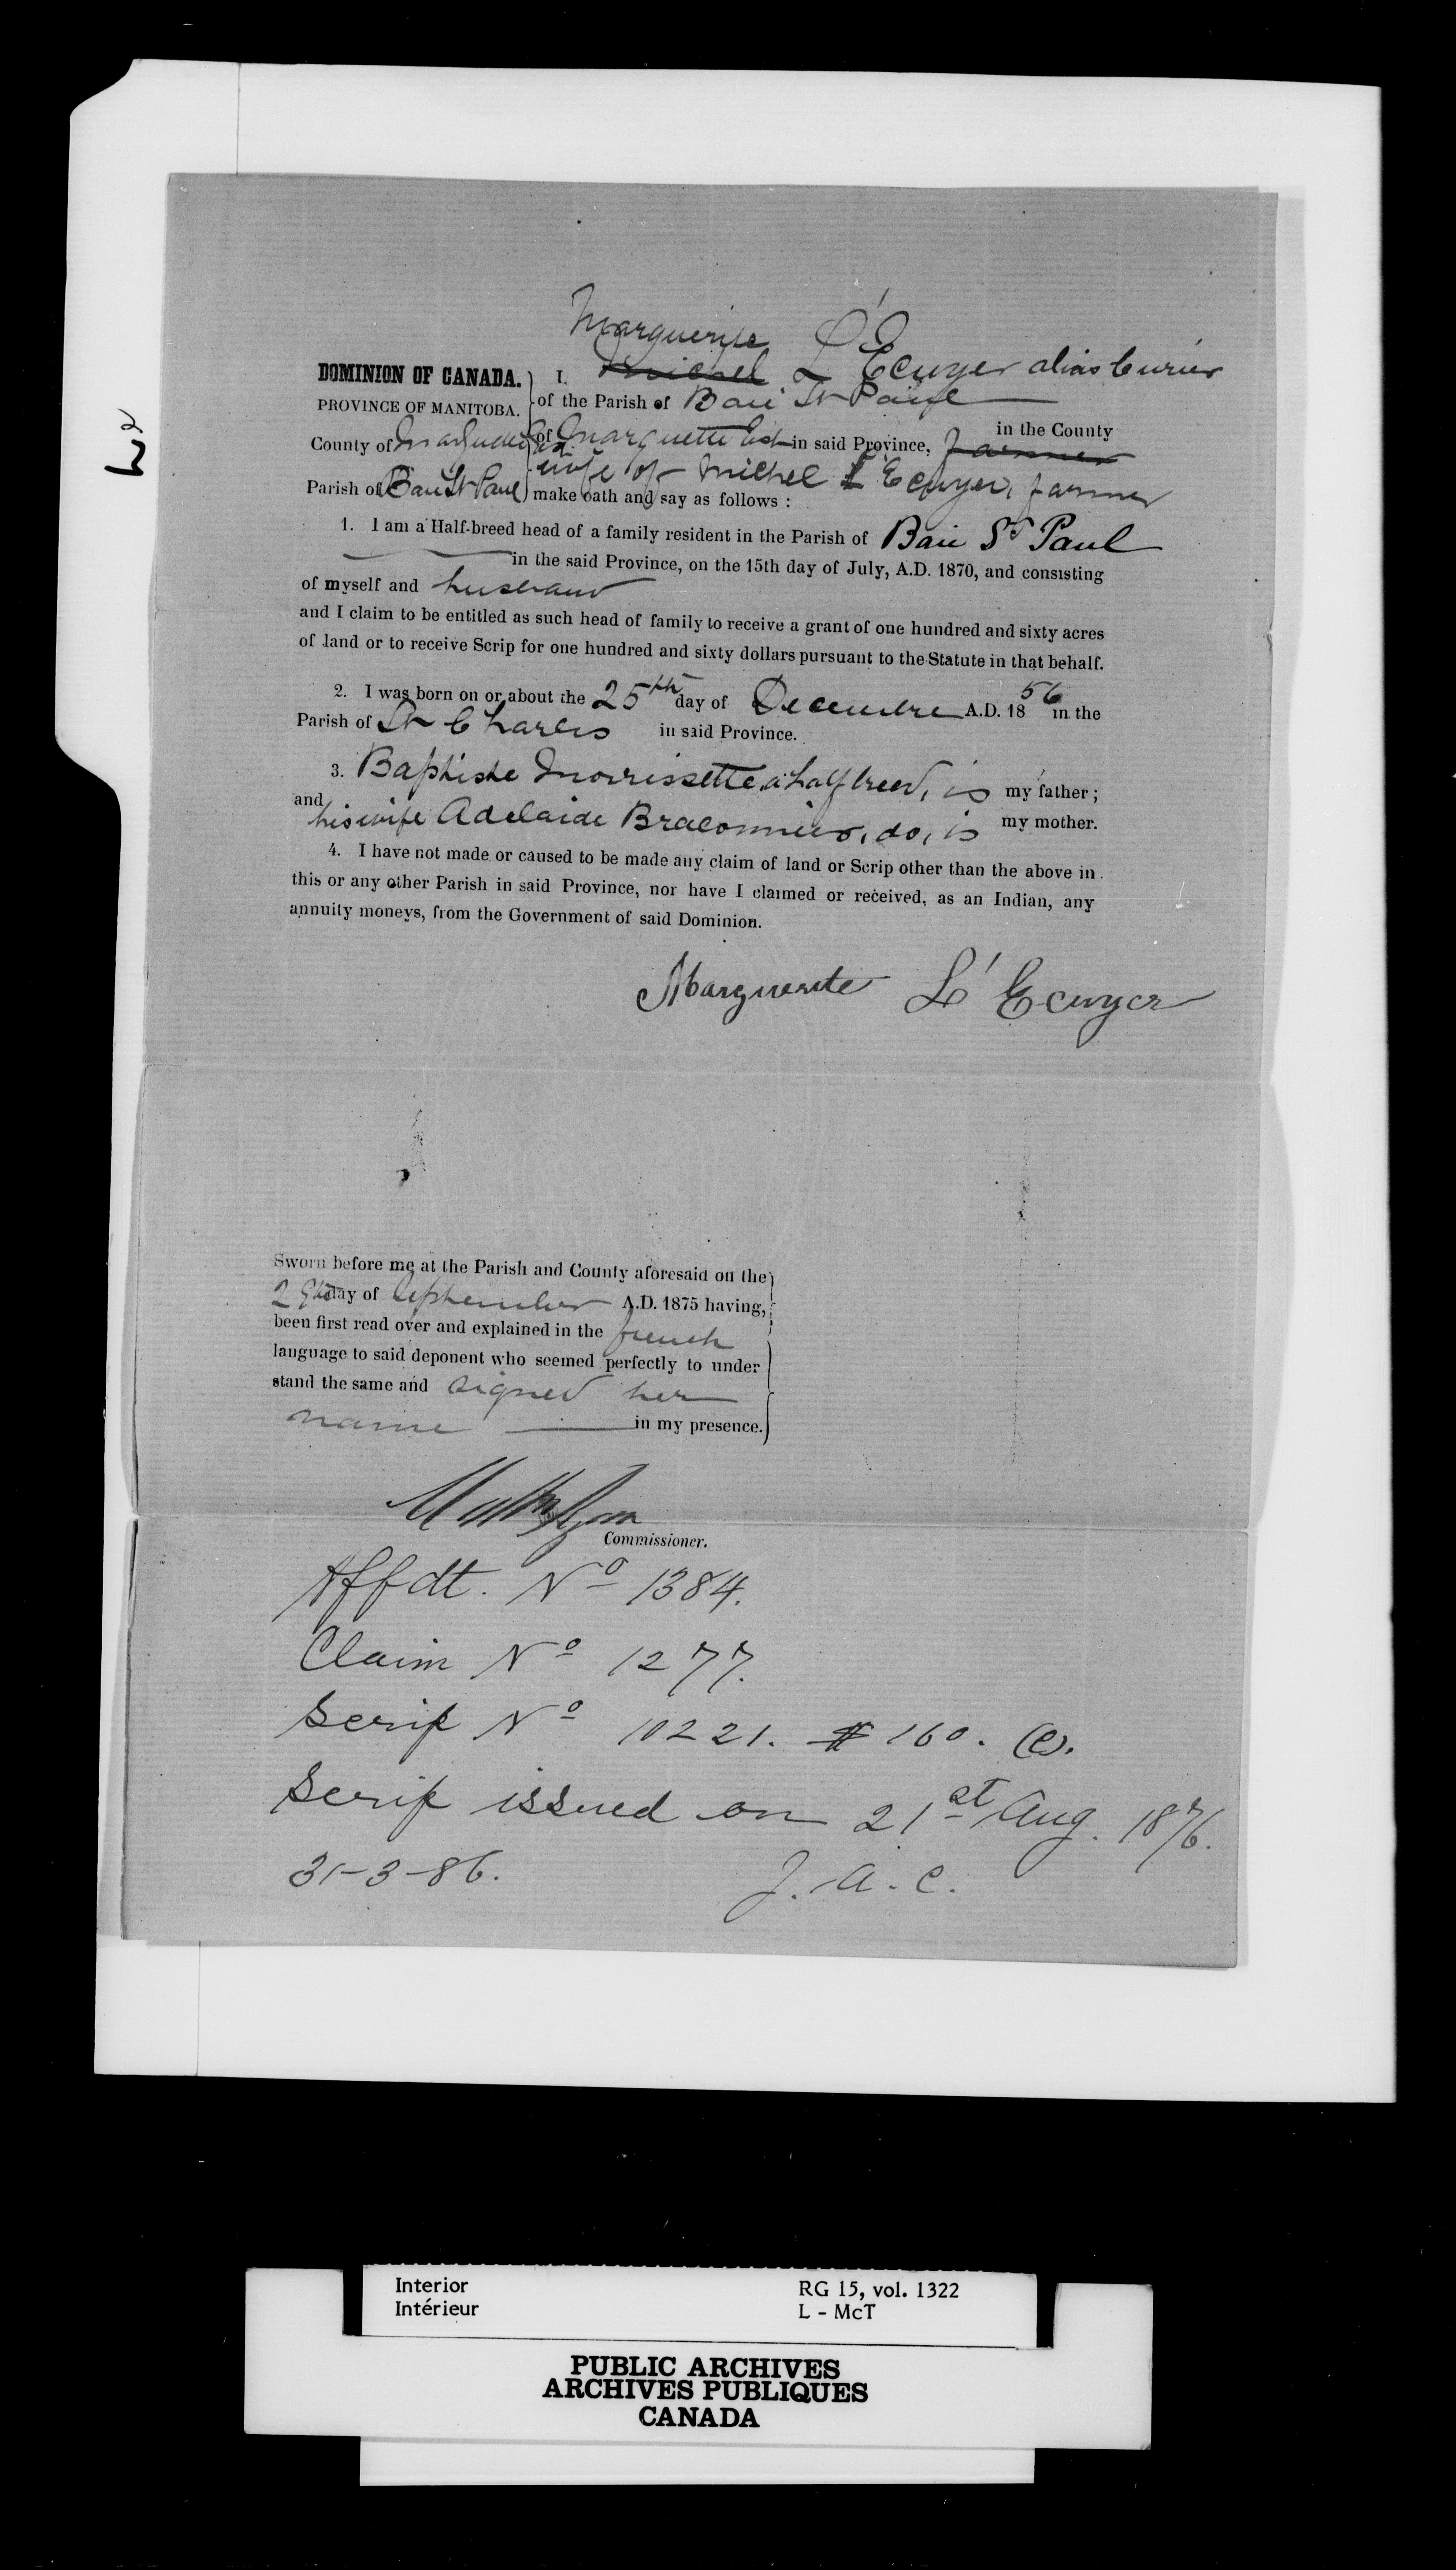 Marguerite L'
DOMINION OF CANADA. I. Michel L Ecuyer alias Curier
PROVINCE OF MANITOBA. of the Parish of Baie St Paul
in the County
County of Marquette Est of Marquette Est in said Province, farmer
wife of Michel L'Ecuyer, farmer
Parish of Baie St Paul make oath and say as follows :
1. I am a Half-breed head of a family resident in the Parish of Baie St Paul
in the said Province, on the 15th day of July, A.D. 1870, and consisting
of myself and husband
and I claim to be entitled as such head of family to receive a grant of one hundred and sixty acres
of land or to receive Scrip for one hundred and sixty dollars pursuant to the Statute in that behalf.
2. I was born on or about the 25th day of Decembre A.D. 1856 in the
Parish of St Charles in said Province.
3. Baptiste Morrissette, a halfbreed, is my father ;
and his wife Adelaide Braconnier, do, is my mother.
4. I have not made or caused to be made any claim of land or Scrip other than the above in
this or any other Parish in said Province, nor have I claimed or received, as an Indian, any
annuity moneys, from the Government of said Dominion.
Marguerite L'Ecuyer
Sworn before me at the Parish and County aforesaid on the
29th day of September A.D. 1875 having,
been first read over and explained in the french
language to said deponent who seemed perfectly to under
stand the same and signed her
name in my presence.
Commissioner.
Affdt. No 1384.
Claim No 1277.
Scrip No 10221. $160. (C).
Scrip issued on 21st Aug. 1876.
31-3-86. J. A. C.
Interior RG 15, vol. 1322
Intérieur L - McT
PUBLIC ARCHIVES
ARCHIVES PUBLIQUES
CANADA